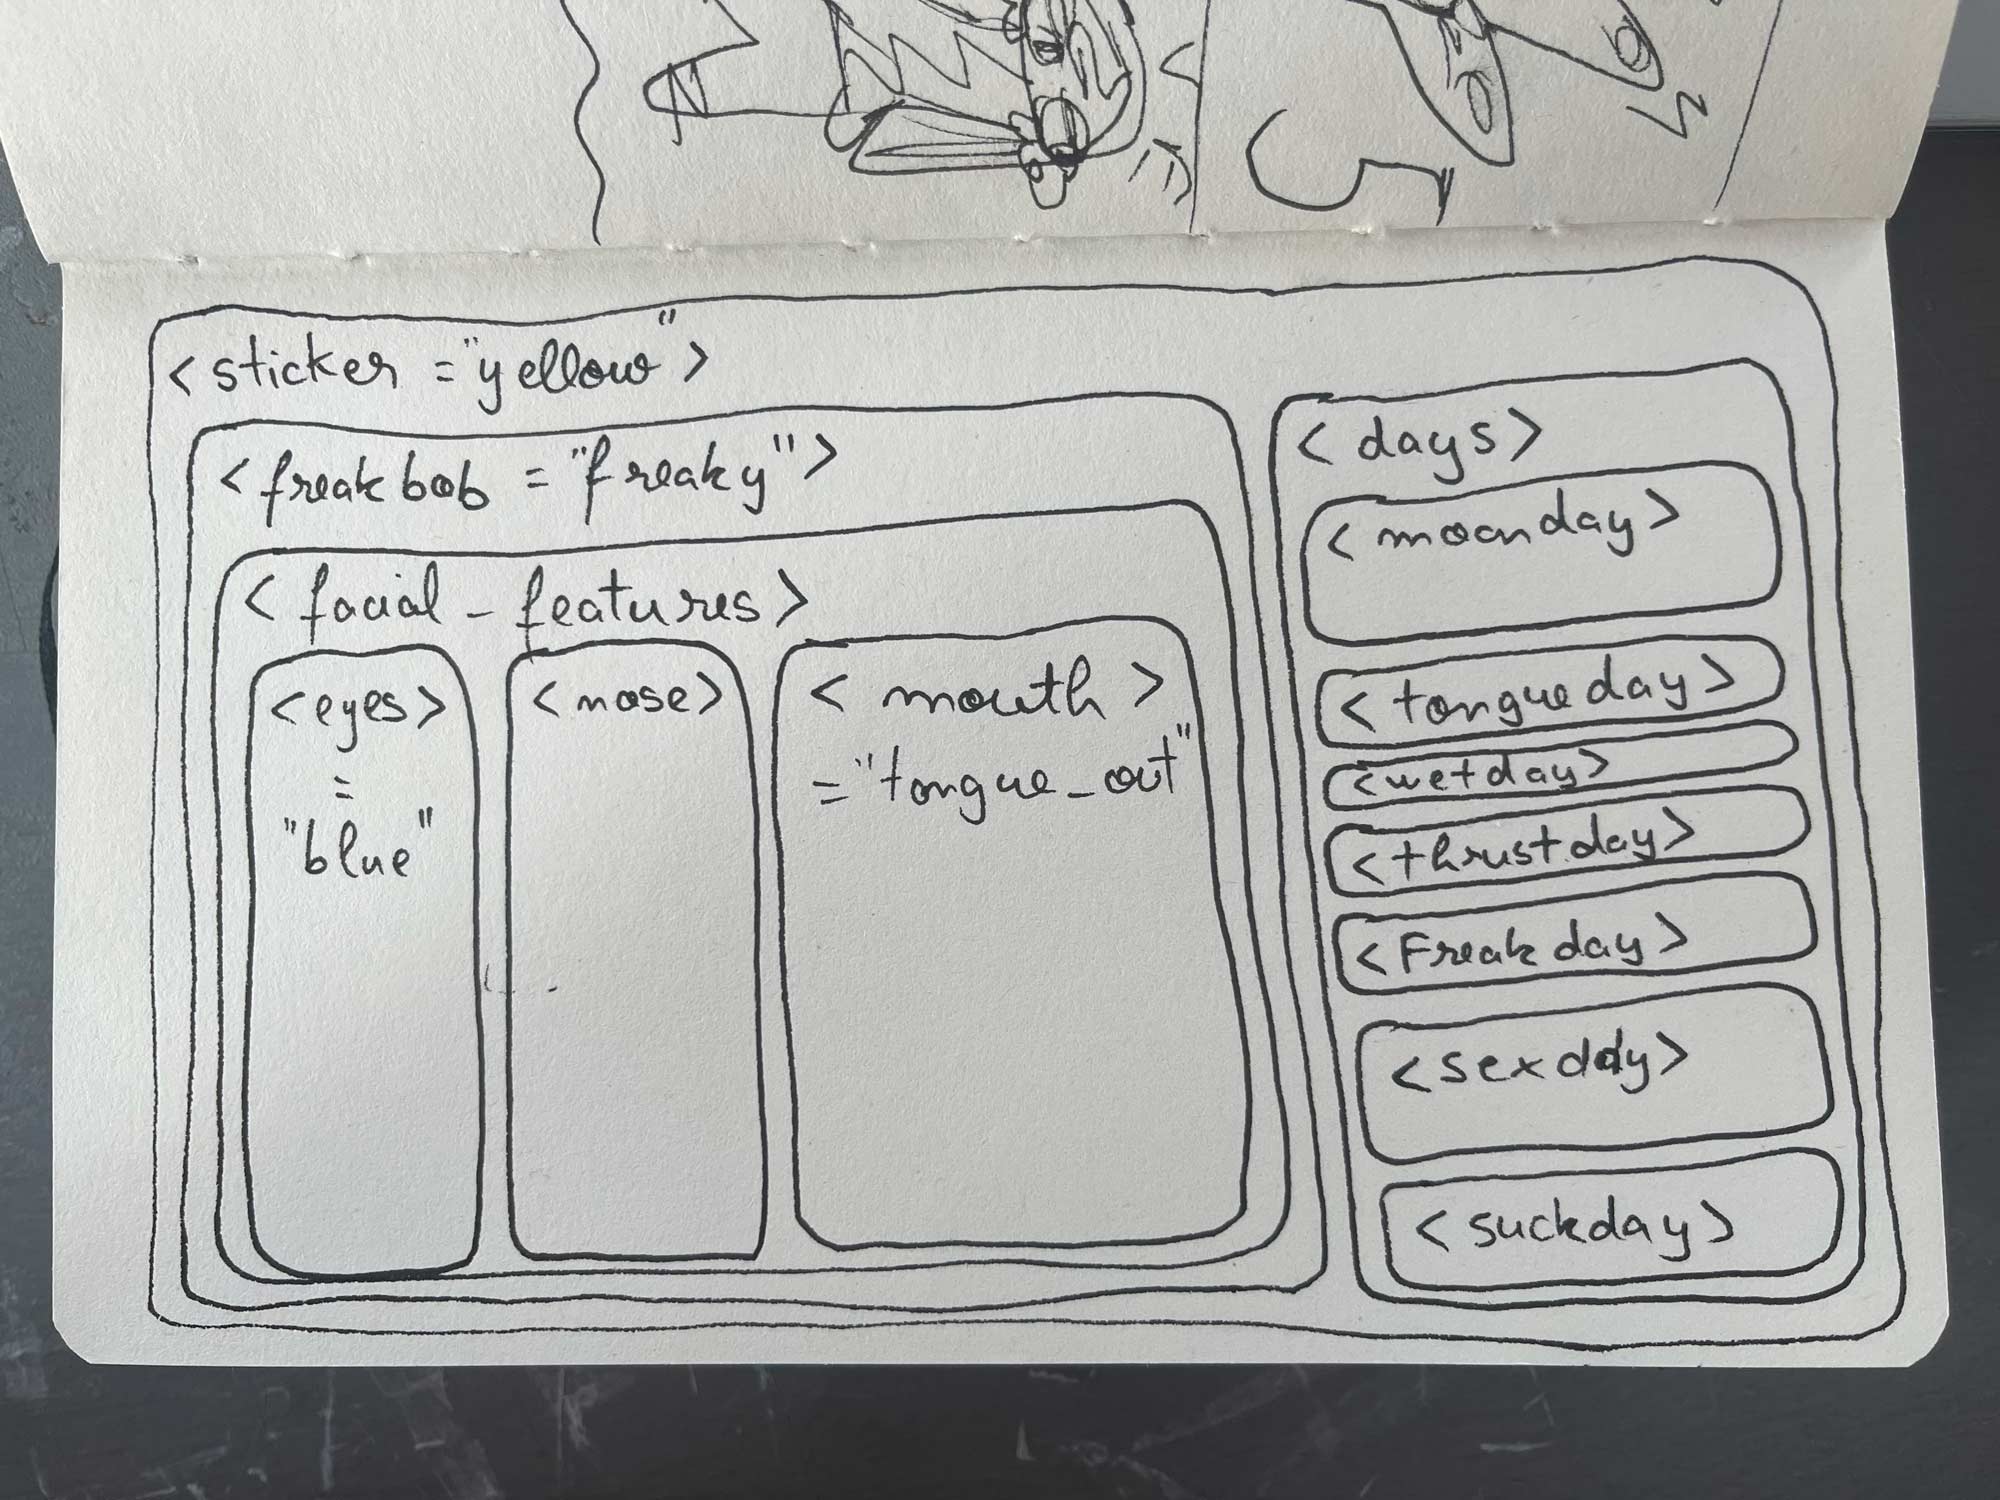 <sticker ="yellow">
<freakbob ="freaky">
<facial_features>
<eyes>
=
"blue"
<nose>
<mouth>
="tongue_out"
<days>
<moanday>
<tongueday>
<wetday>
<thrustday>
<Freakday>
<sexday>
<suckday>